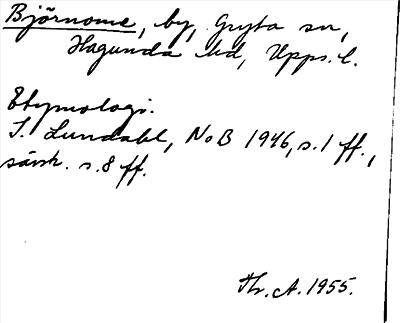 Björnome, by, Gryta sn,
Hagunda hd, Upps. l.
Etymologi.
I. Lundahl, NoB 1946, s. 1 ff.,
särsk. s. 8 ff.
Th. A. 1955.